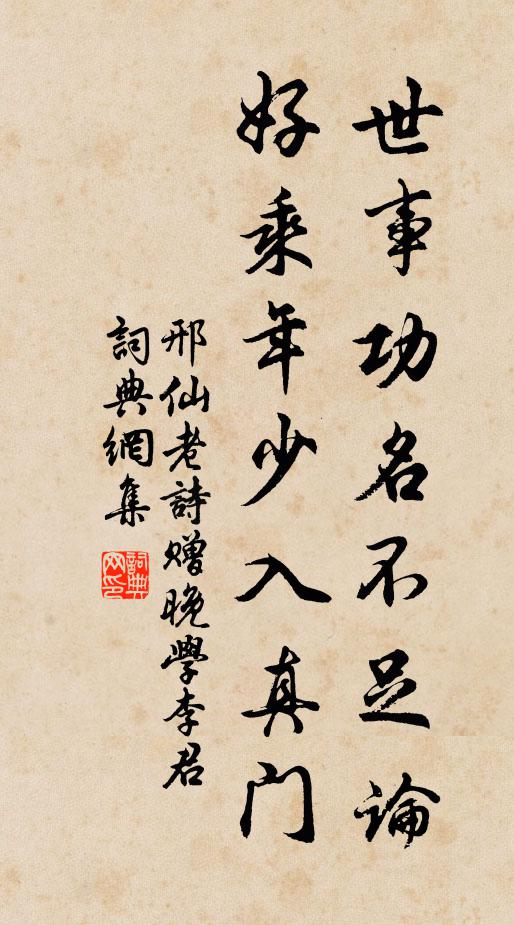 世事功名不足論
好乘年少入真門
邢仙老詩贈晚學李君
詞典網集
詞典網印